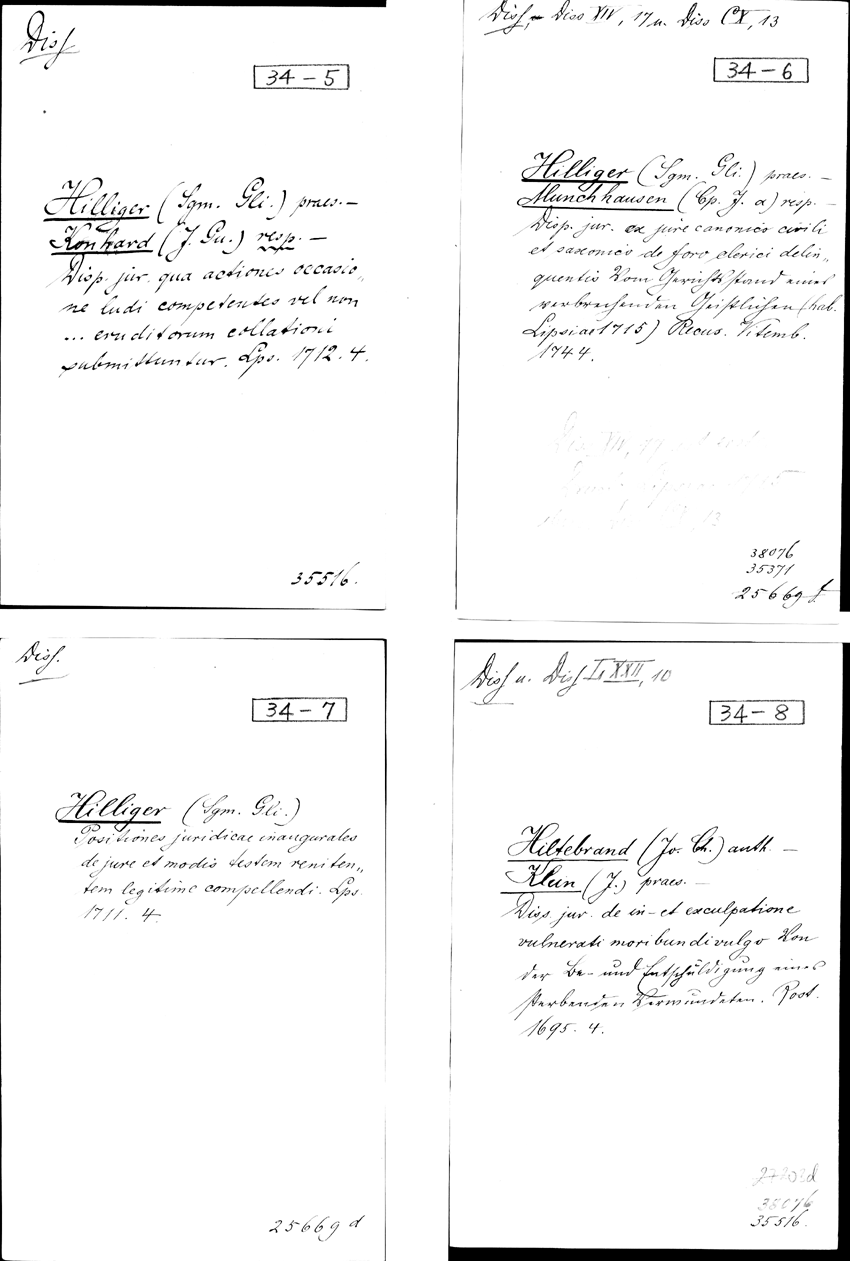 Diss.
34-5
Hilliger (Sgm. Gli.) praes. —
Konhard (J. Gu.) resp. —
Disp. jur. qua actiones occasio„
ne ludi competentes vel non
... eruditorum collationi
submittuntur. Lps. 1712. 4.
35516.
Diss, Diss XIV, 17 u. Diss CX, 13
34-6
Hilliger (Sgm. Gli.) praes. —
Munchhausen (Cp. J. a) resp. —
Disp. jur. ex jure canonico civili
et saxonico de foro clerici delin„
quentis Vom Gerichtsstand eines
verbrechenden Geistlichen (hab.
Lipsiae 1715) Recus. Vitemb.
1744.
38076
35371
25669 f.
Diss.
34-7
Hilliger (Sgm. Gli.)
Positiones juridicae inaugurales
de jure et modis testem reniten„
tem legitime compellendi. Lps.
1711. 4.
25669 d
Diss u. Diss LXXII, 10
34-8
Hiltebrand (Jo. Ch.) auth. —
Klein (J.) praes. —
Diss. jur. de in- et exculpatione
vulnerati moribundi vulgo Von
der Be- und Entschüldigung eines
sterbenden Verwundeten. Rost.
1695. 4.
38076
35516.